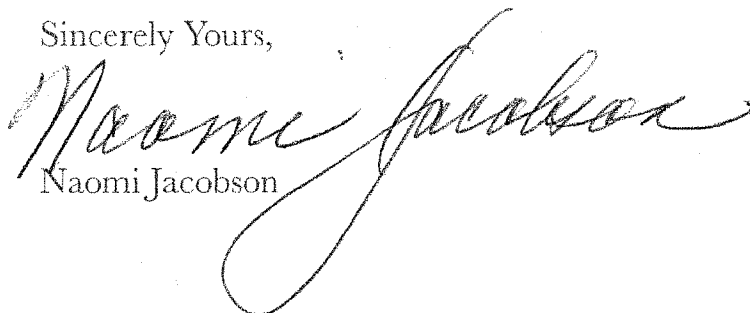 Sincerely Yours,
Naomi Jacobson
Naomi Jacobson